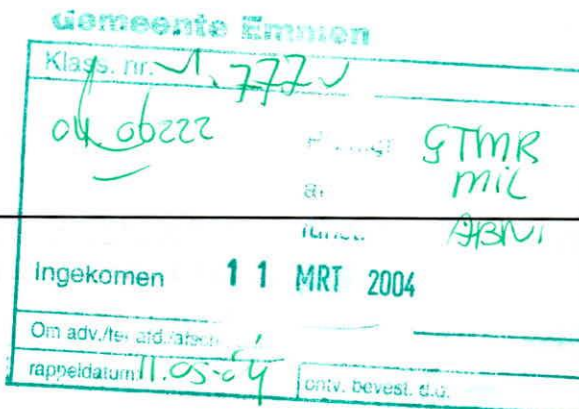 gemeente Emmen
Klass. nr. 1.777
04.06222
GTMR
MIL
Ingekomen 11 MRT 2004
Om adv./ter afd./afsch.
rappeldatum 11.05-04 ontv. bevest. d.d.